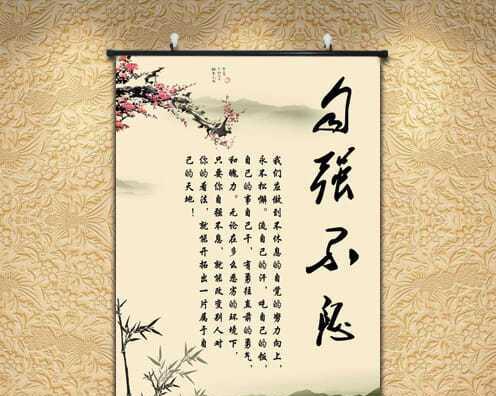 自强不息
我们应做到不休息的自觉的努力向上，
永不松懈。流自己的汗，吃自己的饭，
自己的事自己干，有勇往直前的勇气，
和魄力。无论在多么恶劣的环境下，
只要你自强不息，就能改变别人对
你的看法，就能开拓出一片属于自
己的天地！